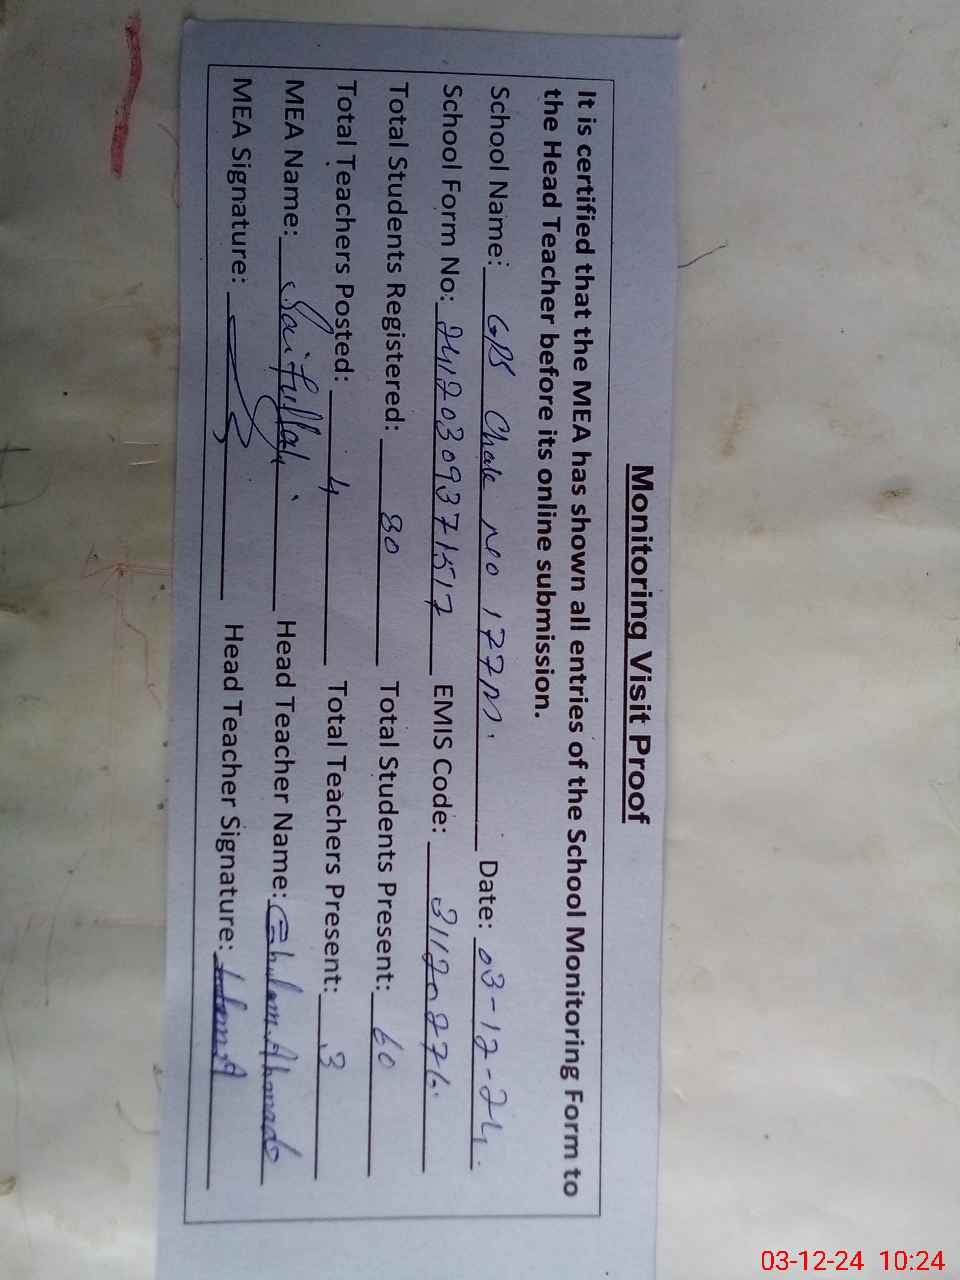 Monitoring Visit Proof
It is certified that the MEA has shown all entries of the School Monitoring Form to
the Head Teacher before its online submission.
School Name: GPS Chak No 177M. Date: 03-12-24.
School Form No: 24120309371517 EMIS Code:
Total Students Registered: 80 Total Students Present: 60
Total Teachers Posted: 4 Total Teachers Present: 3
MEA Name: Saifullah Head Teacher Name: Ghulam Ahmad
MEA Signature: Head Teacher Signature:
03-12-24 10:24